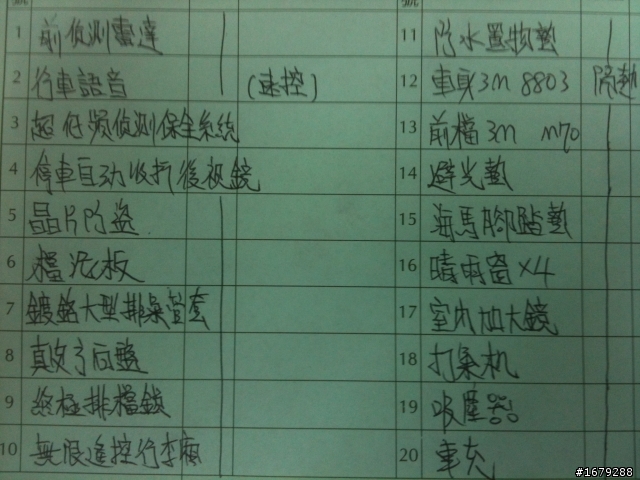 號
1 前偵測雷達
2 行車語音 (速控)
3 超低頻偵測保全系統
4 停車自动收折後視鏡
5 晶片防盜
6 檔泥板
7 鍍鉻大型排氣管套
8 真皮方向盤
9 終極排檔鎖
10 無限遙控行李廂
號
11 防水置物墊
12 車身3M 8803 隔熱
13 前檔 3M M70
14 避光墊
15 海馬腳踏墊
16 晴雨窗×4
17 室內加大鏡
18 打氣机
19 吸塵器
20 車充
#1679288